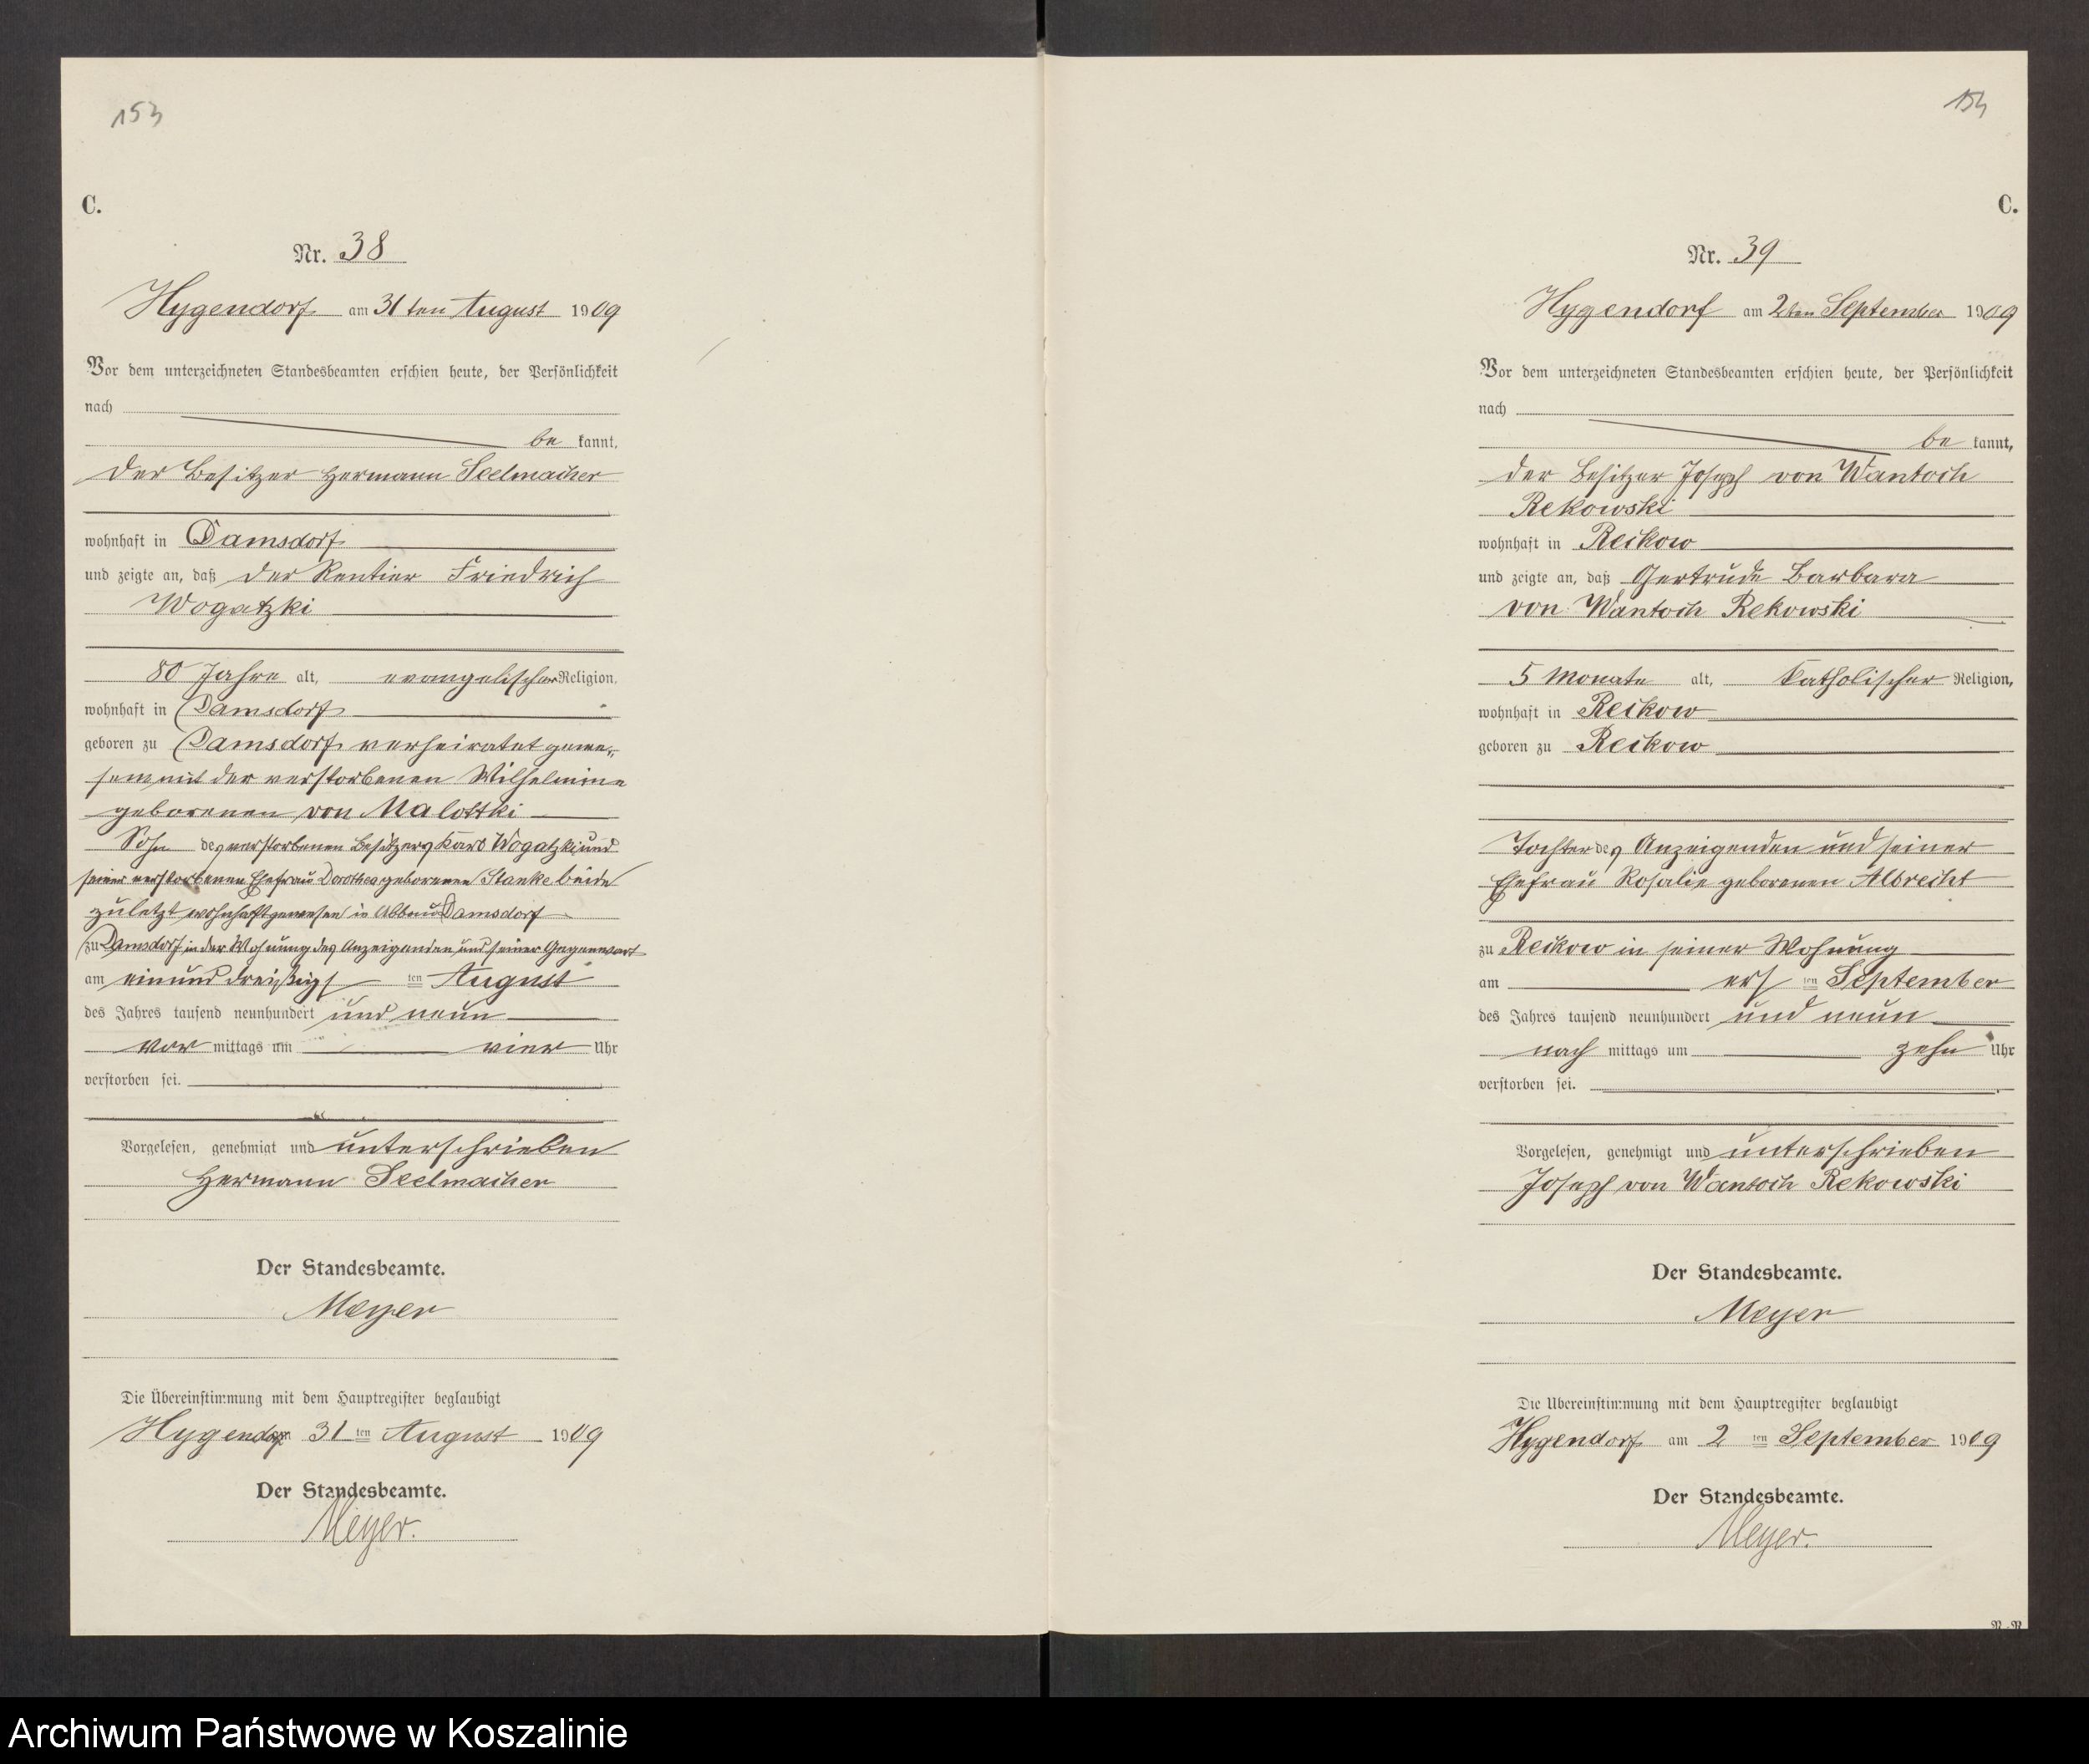 153
C.
Nr. 38
Hygendorf am 31ten August 1909
Vor dem unterzeichneten Standesbeamten erschien heute, der Persönlichkeit
nach
be kannt,
der Besitzer Hermann Seelmacher
wohnhaft in Damsdorf
und zeigte an, daß der Rentier Friedrich
Wogatzki
80 Jahre alt, evangelischer Religion,
wohnhaft in Damsdorf
geboren zu Damsdorf, verheiratet gewe-
sen mit der verstorbenen Wilhelmine
geborenen von Malottki
Sohn des verstorbenen Besitzers Karl Wogatzki und
seiner verstorbenen Ehefrau Dorothea geborenen Stanke beide
zuletzt wohnhaft gewesen in Abbau Damsdorf
zu Damsdorf in der Wohnung des Anzeigenden und seiner Gegenwart
am einunddreißigs ten August
des Jahres tausend neunhundert und neun
vor mittags um vier Uhr
verstorben sei.
Vorgelesen, genehmigt und unterschrieben
Hermann Seelmacher
Der Standesbeamte.
Meyer
Die Übereinstimmung mit dem Hauptregister beglaubigt
Hygendorf am 31 ten August 1909
Der Standesbeamte.
Meyer.
154
C.
Nr. 39
Hygendorf am 2ten September 1909
Vor dem unterzeichneten Standesbeamten erschien heute, der Persönlichkeit
nach
be kannt,
der Besitzer Joseph von Wantoch
Rekowski
wohnhaft in Reckow
und zeigte an, daß Gertrude Barbara
von Wantoch Rekowski
5 Monate alt, katholischer Religion,
wohnhaft in Reckow
geboren zu Reckow
Tochter des Anzeigenden und seiner
Ehefrau Rosalie geborenen Albrecht
zu Reckow in seiner Wohnung
am ers ten September
des Jahres tausend neunhundert und neun
nach mittags um zehn Uhr
verstorben sei.
Vorgelesen, genehmigt und unterschrieben
Joseph von Wantoch Rekowski
Der Standesbeamte.
Meyer
Die Übereinstimmung mit dem Hauptregister beglaubigt
Hygendorf am 2 ten September 1909
Der Standesbeamte.
Meyer.
Archiwum Państwowe w Koszalinie